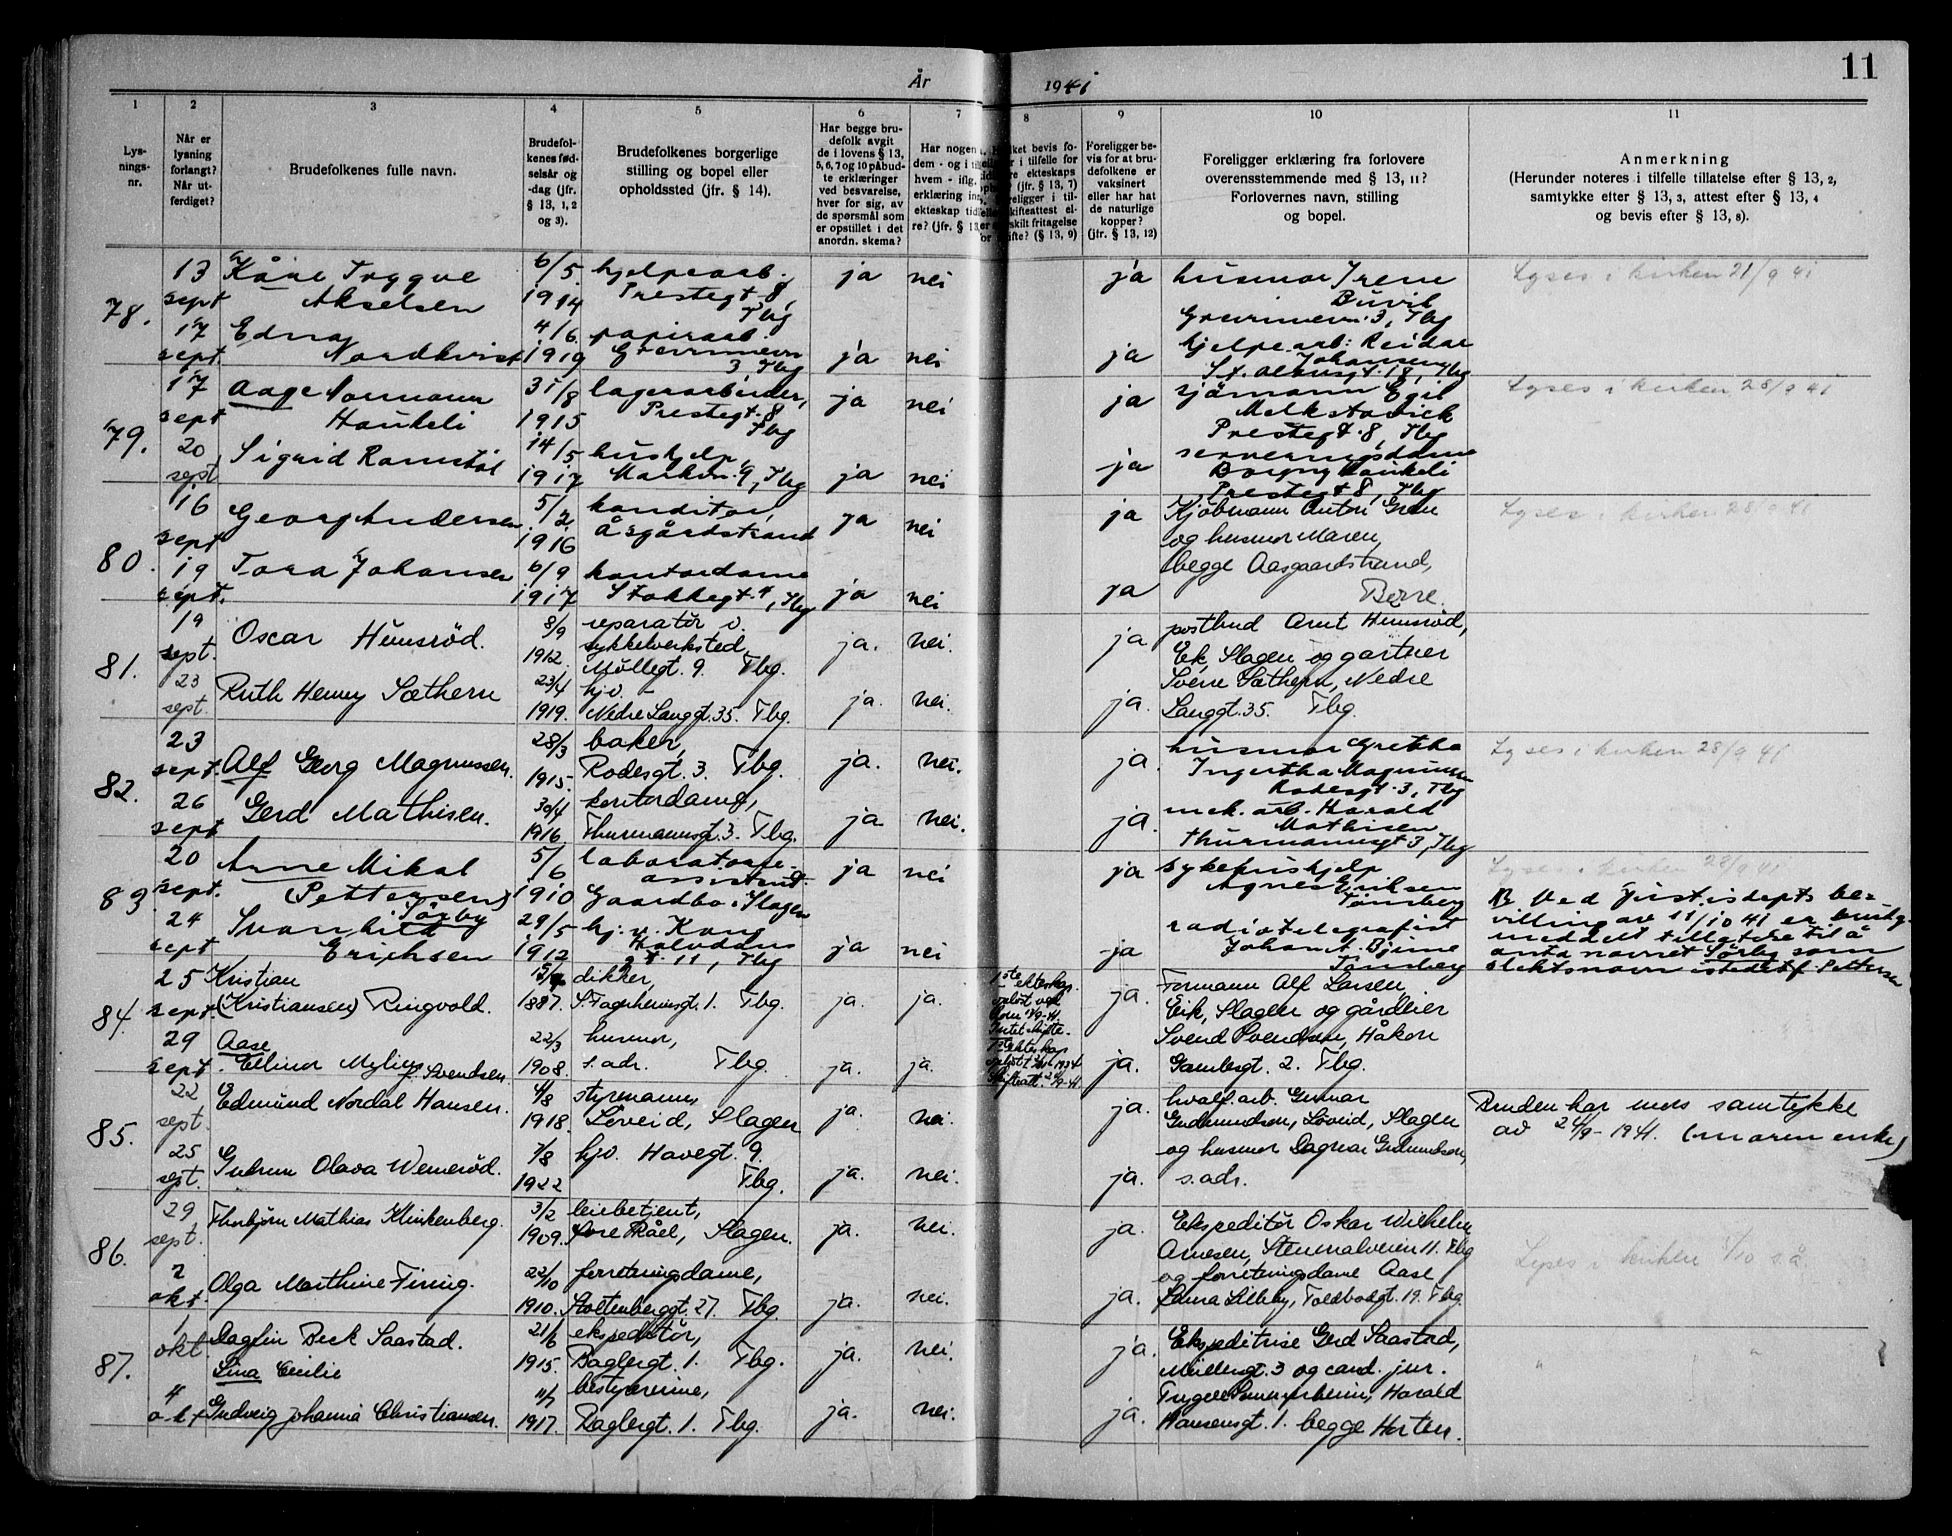 År 1941
11
1 2 3 4 5 6 7 8 9 10 11
Lys-
nings-
nr.
Når er
lysning
forlangt?
Når ut-
ferdiget?
Brudefolkenes fulle navn.
Brudefol-
kenes fød-
selsår og
-dag (jfr.
§ 13, 1, 2
og 3).
Brudefolkenes borgerlige
stilling og bopel eller
opholdssted (jfr. § 14).
Har begge bru-
defolk avgit
de i lovens § 13,
5, 6, 7 og 10 påbud-
te erklæringer
ved besvarelse,
hver for sig, av
de spørsmål som
er opstillet i det
anordn. skema?
Har nogen
dem - og i
hvem - iflg.
erklæring in
ekteskap tid
re? (jfr. § 13
ket bevis fo-
r i tilfelle for
re ekteskaps
? (jfr. § 13, 7)
religger i til-
skifteattest el-
skilt fritagelse
ifte? (§ 13, 9)
Foreligger be-
vis for at bru-
defolkene er
vaksinert
eller har hat
de naturlige
kopper?
(jfr. § 13, 12)
Foreligger erklæring fra forlovere
overensstemmende med § 13, 11?
Forlovernes navn, stilling
og bopel.
Anmerkning
(Herunder noteres i tilfelle tillatelse efter § 13, 2,
samtykke efter § 13, 3, attest efter § 13, 4
og bevis efter § 13, 8).
78.
13 sept
Kåre Tryggve
Akselsen
6/5 1914
hjelpearb.
Prestegt. 8,
Tbg
ja nei ja
husmor Irene
3, Tbg
Lyses i kirken 21/9 41
17 sept.
Edna
Nordkvist
4/6 1919
papirarb.
3 Tbg
ja nei ja
hjelpearb. Reidar
Johansen
St. Olavsgt. 18, Tbg
79.
17 sept
Aage Normann
Haukeli
31/8 1915
lagerarbeider,
Prestegt. 8
Tbg
ja nei ja
sjømann Egil
Prestegt. 8, Tbg
Lyses i kirken 28/9 41
20 sept
Sigrid Ramstøl
14/5 1917
hushjelp
9, Tbg
ja nei ja
serveringsdame
Borgny Haukeli
Prestegt 8, Tbg
80.
16 sept
Georg Andersen
5/2 1916
konditor,
Åsgårdstrand
ja nei ja
Kjøbmann Anton
og husmor Maren,
begge Aasgaardstrand,
Lyses i kirken 28/9 41
19 sept.
Tora Johansen
6/9 1917
kontordame
Stokkegt. 4, Tbg
ja nei ja
Borre.
81.
19 sept.
Oscar Hemsrød.
8/9 1912.
reparatør v.
sykkelverksted,
Møllegt. 9. Tbg.
ja. nei. ja
postbud Arnt Hemsrød,
Ek, Slagen og gartner
23 sept.
Ruth Henny Sæthern
23/4 1919.
hjv. -
Nedre Langgt. 35. Tbg.
ja. nei. ja.
Sverre Sæthern, Nedre
Langgt. 35. Tbg.
82.
23 sept.
Alf Georg Magnussen.
28/3 1915.
baker,
Rodesgt. 3. Tbg.
ja. nei. ja.
husmor Grethe
Ingertha Magnussen
Rodesgt. 3, Tbg
Lyses i kirken 28/9 41
26 sept
Gerd Mathisen.
30/4 1916
kontordame,
Thurmannsgt. 3. Tbg.
ja nei. ja.
mek. arb. Harald
Mathisen
Thurmannsgt 3, Tbg
83.
20 sept.
Arne Mikal
(Pettersen)
Sørby
5/6 1910
laboratorie-
assistent.
Gaardbo i Slagen
ja nei ja
sykehushjelp
Agnes Eriksen
Tønsberg
Lyses i kirken 28/9 41
24 sept
Svanhild
Erichsen
29/5 1912
hj. v. Kong
Halvdans
gt 11, Tbg
ja nei ja
radiotelegrafist
Johan A. Bjerne
Tønsberg
NB. Ved Justisdepts be-
villing av 11/10 41 er brudg.
meddelt tillatelse til å
anta navnet Sørby som
slektsnavn istedetf. Petterse
84.
25 sept
Kristian
(Kristiansen) Ringvold.
1887.
dikker,
S. Fagerheimsgt. 1. Tbg.
ja. ja.
1ste ekteskap
opløst ved
Intet skifte.
ja.
Formann Alf Larsen,
Eik, Slagen og gårdeier
29 sept.
Aase
Ellinor Mylius f. Svendsen.
22/3 1908.
husmor,
s. adr. Tbg.
ja. ja.
1ste ekteskap
ja.
Svend Svendsen, Håkon
Gamlesgt. 2. Tbg.
85.
22 sept.
Edmund Nordal Hansen.
4/8 1918.
styrmann,
Løveid, Slagen
ja. nei. ja.
hvalf. arb. Gunnar
Gudmundsen, Løveid, Slagen
Bruden har mors samtykke
av 24/9 - 1941. (moren enke)
25 sept.
Gudrun Olava Wemerød.
7/8 1922
hjv. Havegt. 9.
Tbg.
ja. nei. ja.
og husmor Dagmar Gudmundsen,
s. adr.
86.
29 sept.
Thorbjørn Mathias Klinkenberg.
3/2 1909.
leiebetjent,
Råel, Slagen.
ja. nei. ja.
Ekspeditør Oskar Wilhelm
Arnesen, Stenmalveien 11. Tbg
Lyses i kirken 5/10 s.å.
2 okt.
Olga Marthine Firing.
22/10 1910.
forretningdame,
Stoltenberggt. 27. Tbg.
ja. nei. ja.
og forretningdame Aase
Laura Lilleby, Toldbodgt. 19. Tbg.
87.
1 okt.
Dagfin Beck Saastad.
21/6 1915.
ekspeditør,
Baglergt. 1. Tbg.
ja. nei. ja.
Ekspeditrise Gerd Saastad,
Møllergt. 3 og cand. jur.
" "
4 okt
Lina Cecilie
Gudveig Johanna Christiansen.
1917.
bestyrerinne,
Baglergt. 1. Tbg.
ja. nei. ja.
Harald
Hansensgt. 1. begge Horten.